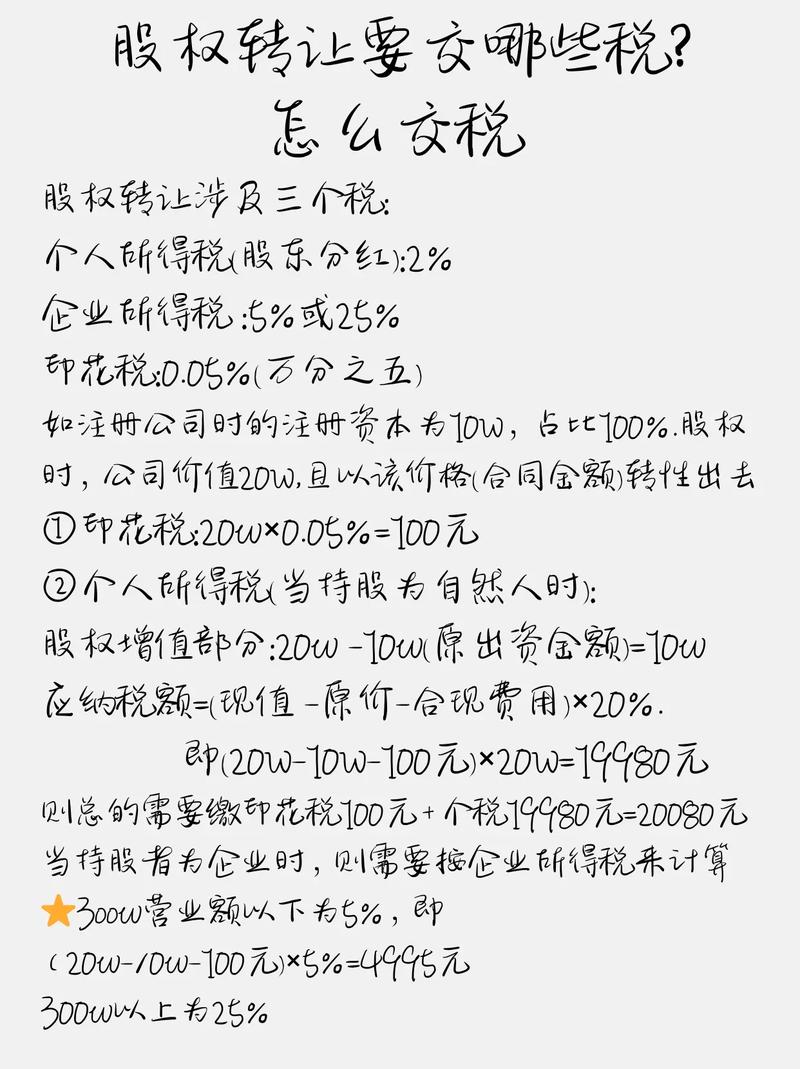 股权转让要交哪些税?
怎么交税
股权转让涉及三个税:
个人所得税(股东分红):2%
企业所得税:5%或25%
印花税:0.05%(万分之五)
如注册公司时的注册资本为10w，占比100%.股权
时，公司价值20w,且以该价格(合同金额)转性出去
①印花税:20w×0.05%=100元
②个人所得税(当持股为自然人时):
股权增值部分:20w-10w(原出资金额)=10w
应纳税额=(现值-原价-合现费用)×20%.
即(20w-10w-100元)×20w=19980元
则总的需要缴印花税100元+个税19980元=20080元
当持股者为企业时，则需要按企业所得税来计算
⭐300w营业额以下为5%，即
(20w-10w-100元)×5%=4995元
300w以上为25%